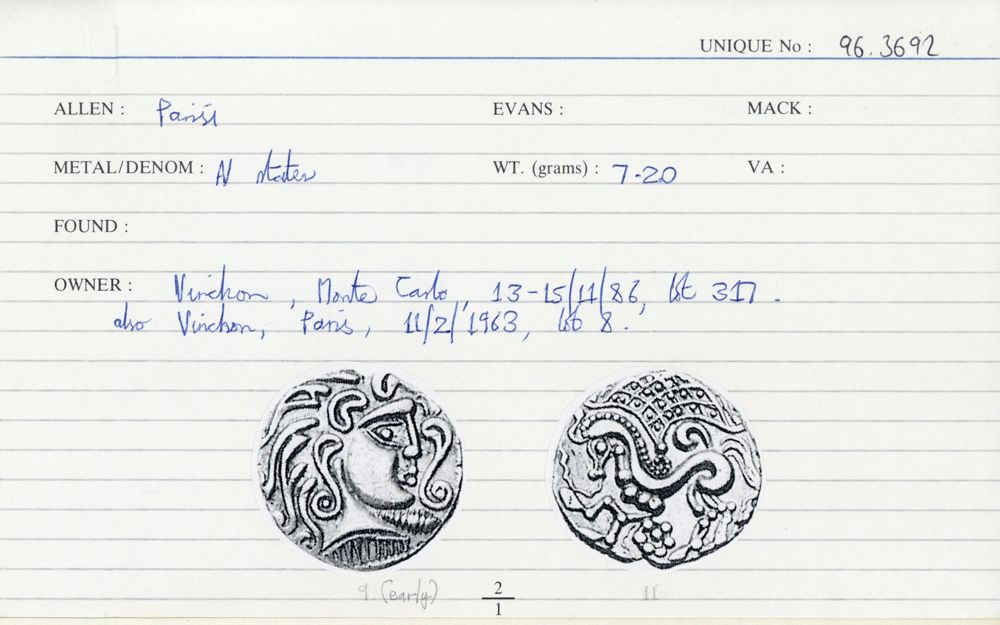 UNIQUE No : 96.3692
ALLEN : Parisii EVANS : MACK :
METAL/DENOM : AV stater WT. (grams) : 7.20 VA :
FOUND :
OWNER : Vinchon, Monte Carlo, 13-15/11/86, lot 317.
also Vinchon, Paris, 11/2/1963, lot 8.
9 (early) 2/1 11